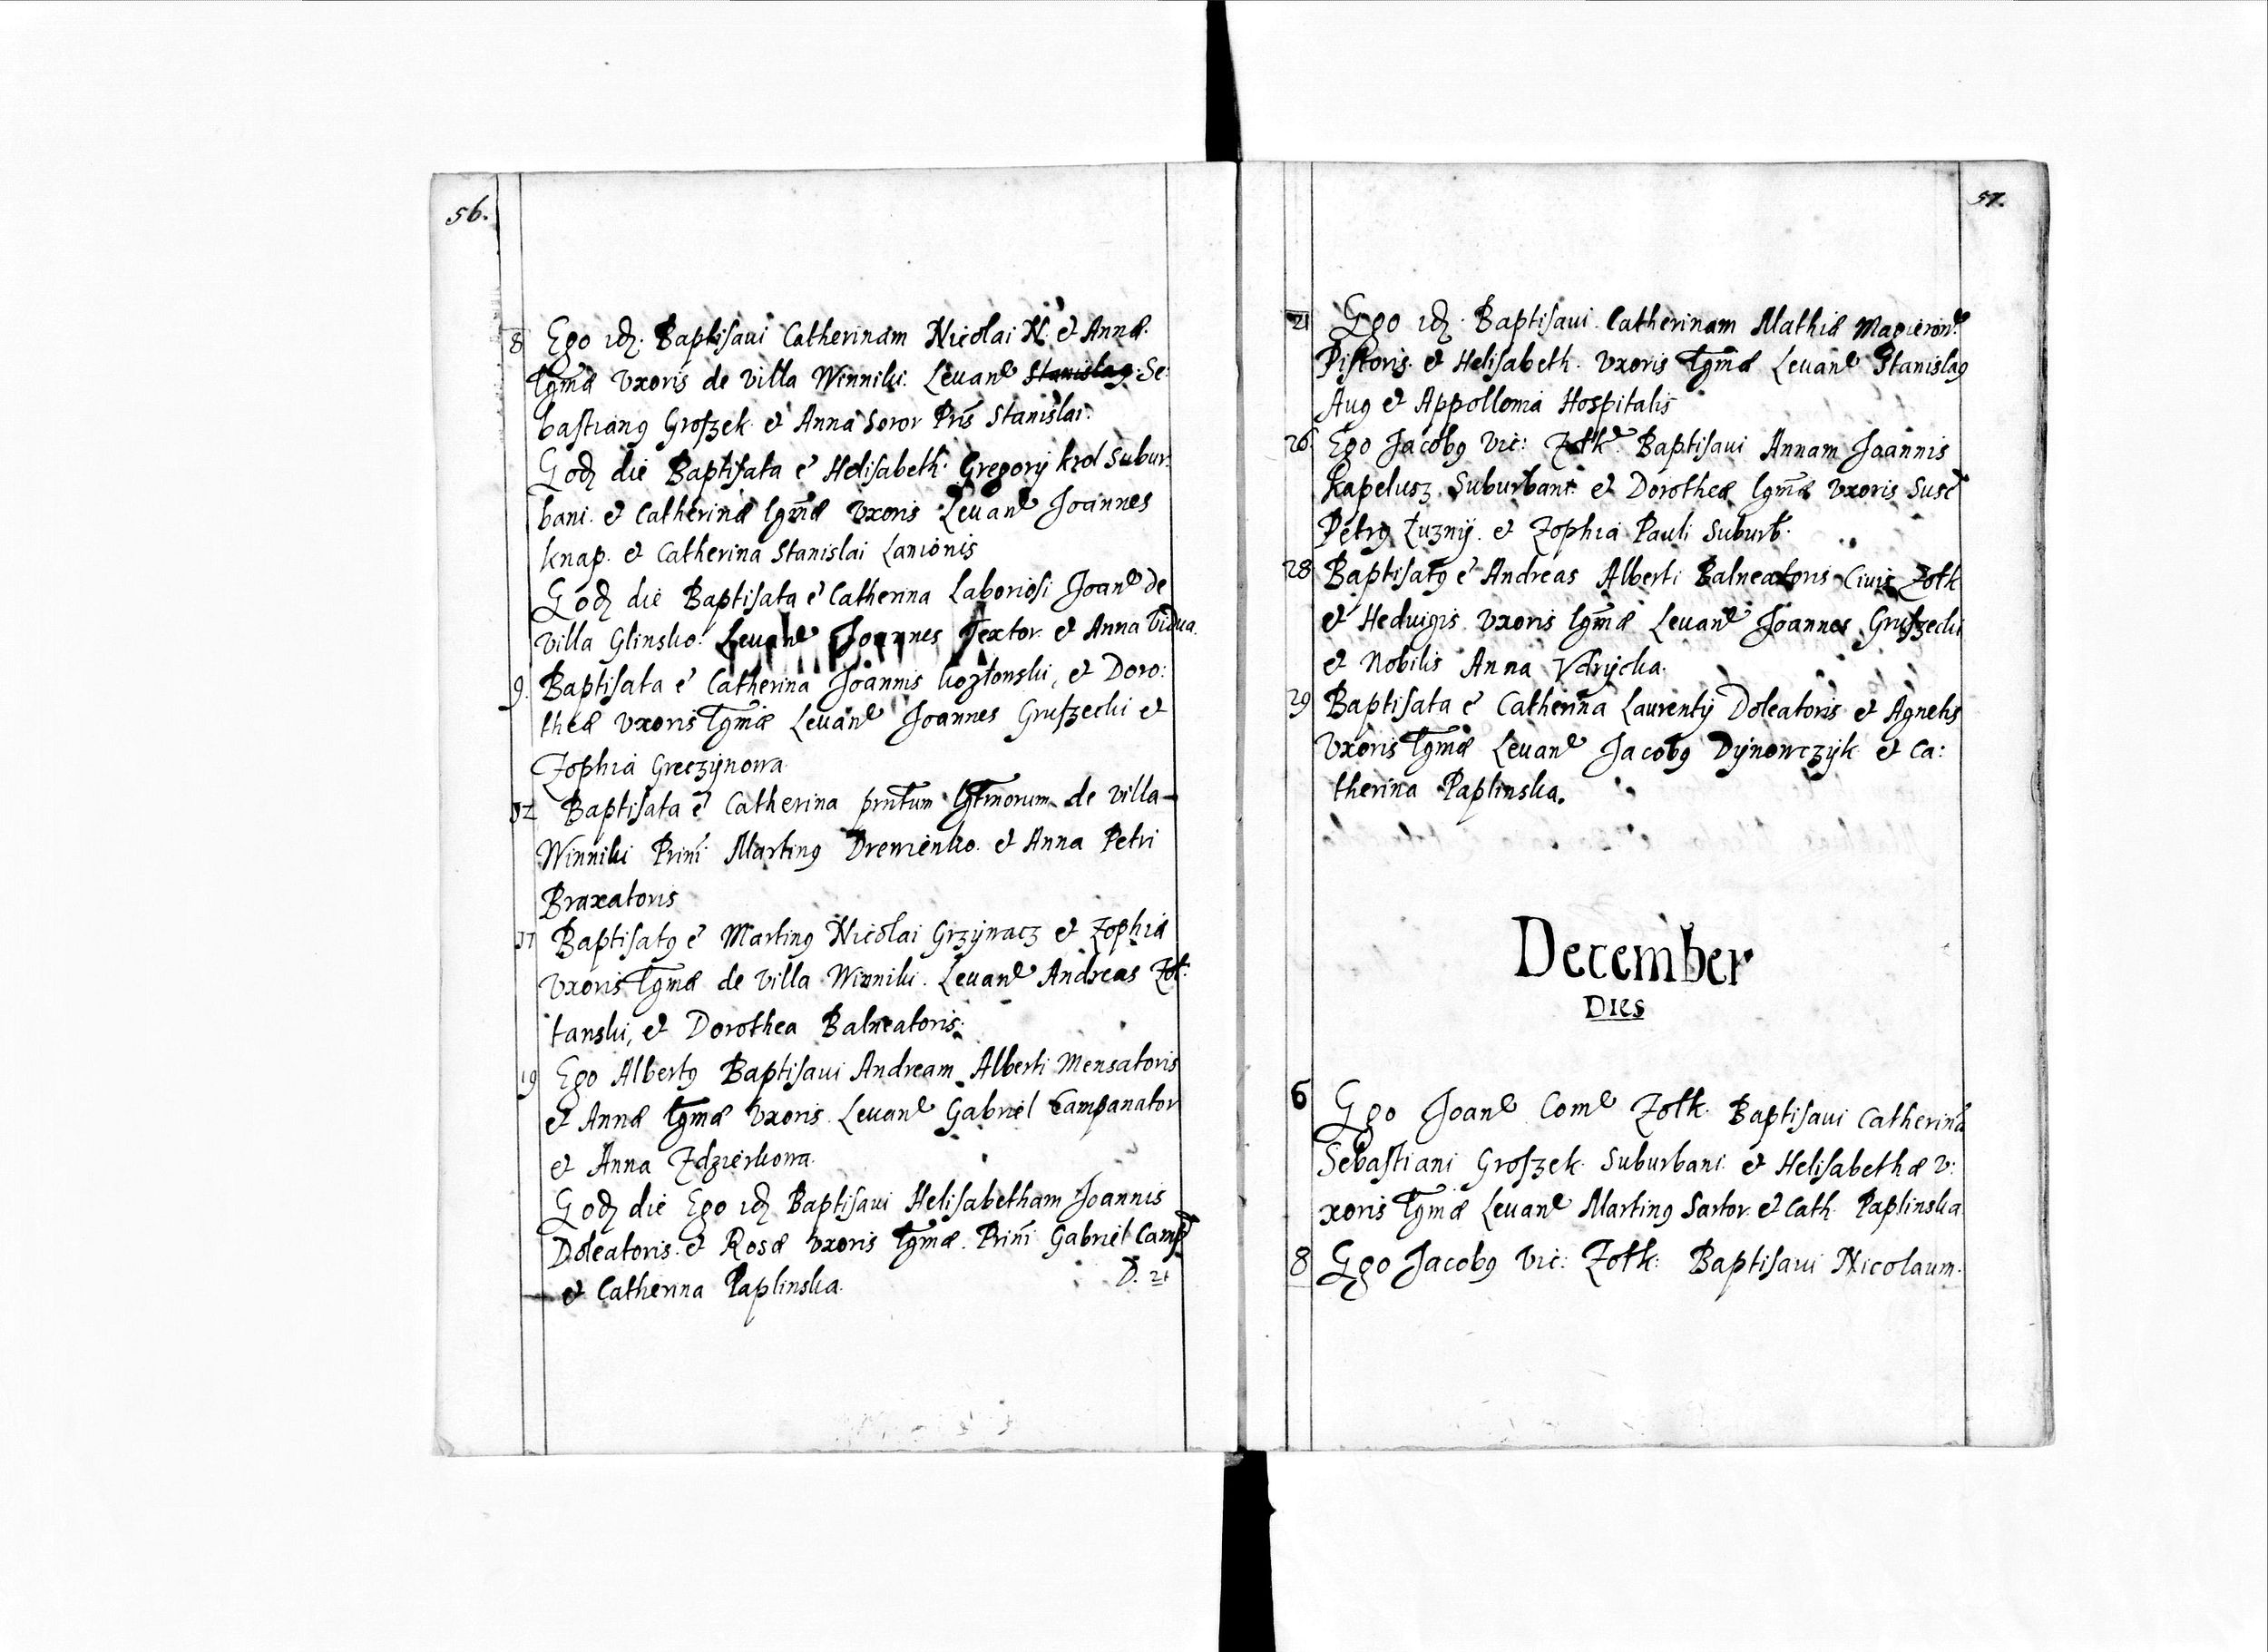 56.
8 Ego idꝫ. Baptisaui Catherinam Nicolai N. et Annæ
lgmæ Vxoris de villa Winniki. Leuanꝭ Stanislaꝰ Se:
bastianꝰ Groszek et Anna Soror Pris Stanislai.
Eodꝫ die Baptisata e Helisabeth Gregorij krol Subur:
bani. et Catherinæ lgmæ Vxoris Leuanꝭ Joannes
knap. et Catherina Stanislai Lanionis
Eodꝫ die Baptisata e Catherina Laboriosi Joanꝭ de
villa Glinsko. Leuanꝭ Joannes Textor et Anna Vidua.
9. Baptisata e Catherina Joannis kozłonski, et Doro:
theæ Vxoris lgmæ Leuanꝭ Joannes Gruszecki et
Zophia Greczÿnowa
12 Baptisata e Catherina prntum lgtmorum de villa
Winniki Prini Martinꝰ Drewienko. et Anna Petri
Braxatoris
17 Baptisatꝰ e Martinꝰ Nicolai Grzÿwacz et Zophiæ
Vxoris lgmæ de villa Winniki. Leuanꝭ Andreas Zoł:
tanski, et Dorothea Balneatoris.
19 Ego Albertꝰ Baptisaui Andream Alberti Mensatoris
et Annæ lgmæ Vxoris. Leuanꝭ Gabriel Campanator
et Anna Zdzierkowa.
Eodꝫ die Ego idꝫ Baptisaui Helisabetham Joannis
Doleatoris. et Rosæ Vxoris lgmæ. Prini Gabriel Camp
et Catherina Paplinska.
D. 21
57.
21 Ego idꝫ. Baptisaui Catherinam Mathiæ
Pistoris. et Helisabeth. Vxoris lgmæ Leuanꝭ Stanislaꝰ
Auꝰ et Appollonia Hospitalis
26 Ego Jacobꝰ Vic: Zołk. Baptisaui Annam Joannis
Kapelusz Suburbani et Dorotheæ lgmæ Vxoris Susc
Petrꝰ Łuznÿ. et Zophia Pauli Suburb.
28 Baptisatꝰ e Andreas Alberti Balneatoris Ciuis Zołk
et Heduigis Vxoris lgmæ Leuanꝭ Joannes Gruszecki
et Nobilis Anna Vdrÿcka.
29 Baptisata e Catherina Laurentÿ Doleatoris et Agnetis
Vxoris lgmæ Leuanꝭ Jacobꝰ Dÿnowczÿk et Ca:
therina Paplinska.
December
Dies
6 Ego Joanꝭ Comꝭ Zołk. Baptisaui Catherina
Sebastiani Groszek Suburbani et Helisabethæ v:
xoris lgmæ Leuanꝭ Martinꝰ Sartor et Cath. Paplinska
8 Ego Jacobꝰ Vic: Zołk: Baptisaui Nicolaum.